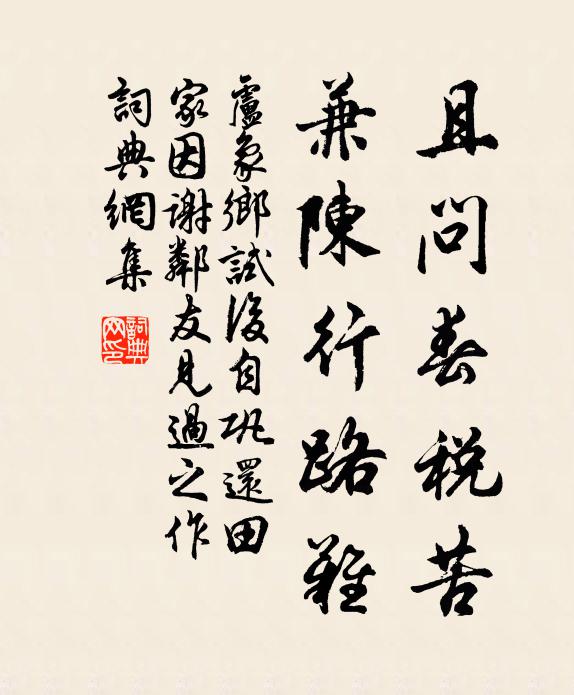 且問春税苦
兼陳行路難
盧象鄉試後自巩還田
家因谢鄰友見過之作
詞典網集
詞典
网印